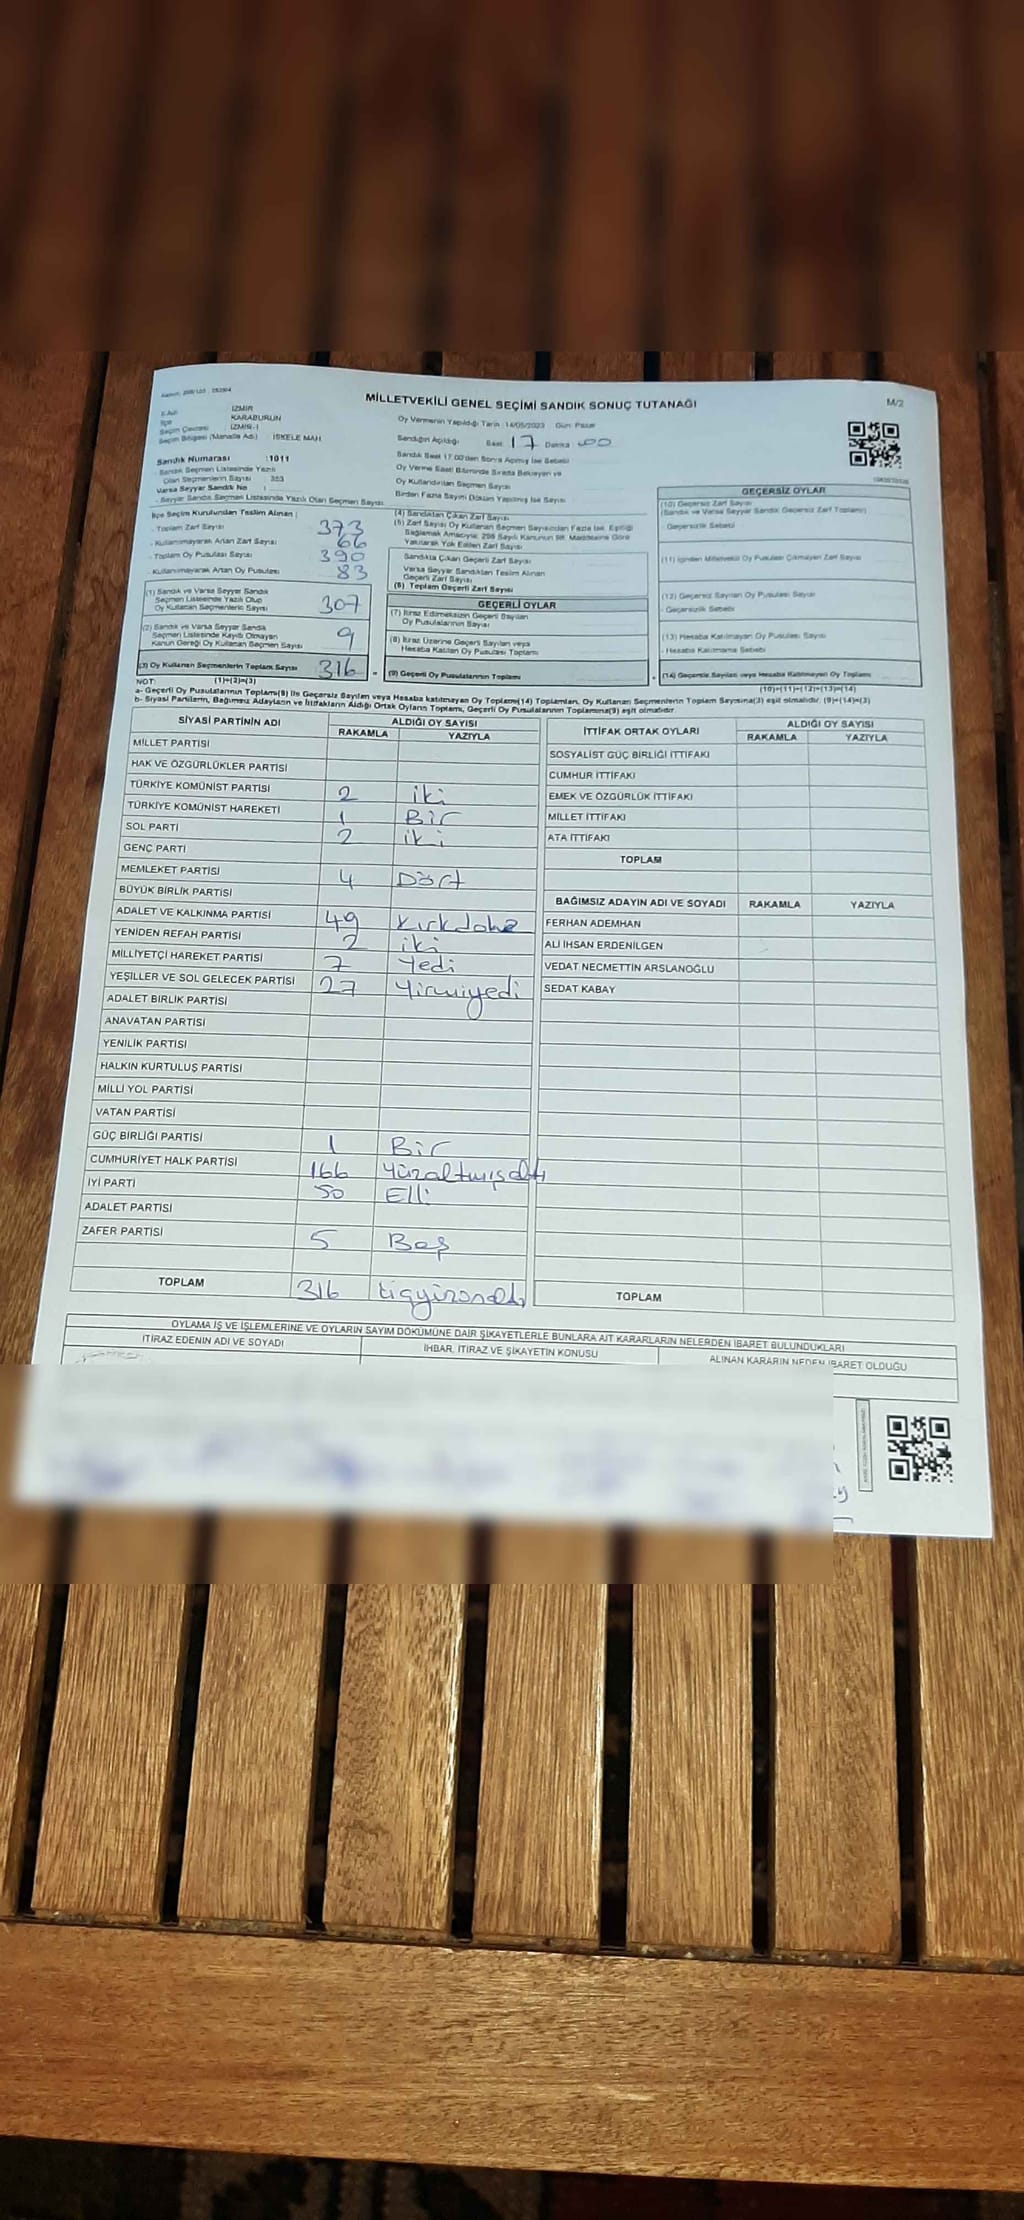 MİLLETVEKİLİ GENEL SEÇİMİ SANDIK SONUÇ TUTANAĞI
M/2
İli/Adı : İZMİR
İlçe : KARABURUN
Seçim Çevresi : İZMİR-I
Seçim Bölgesi (Mahalle Adı) : İSKELE MAH.
Oy Vermenin Yapıldığı Tarih : 14/05/2023 Gün: Pazar
Sandığın Açıldığı Saat 17 Dakika 00
Sandık Saat 17:00'den Sonra Açılmış İse Sebebi
Oy Verme Saati Bitiminde Sırada Bekleyen ve
Oy Kullandırılan Seçmen Sayısı
Birden Fazla Sayım Döküm Yapılmış İse Sayısı
Sandık Numarası : 1011
Sandık Seçmen Listesinde Yazılı
Olan Seçmenlerin Sayısı 353
Varsa Seyyar Sandık No :
- Seyyar Sandık Seçmen Listesinde Yazılı Olan Seçmen Sayısı
İlçe Seçim Kurulundan Teslim Alınan ;
- Toplam Zarf Sayısı 373
- Kullanılmayarak Artan Zarf Sayısı 66
- Toplam Oy Pusulası Sayısı 390
- Kullanılmayarak Artan Oy Pusulası 83
(1) Sandık ve Varsa Seyyar Sandık
Seçmen Listesinde Yazılı Olup
Oy Kullanan Seçmenlerin Sayısı 307
(2) Sandık ve Varsa Seyyar Sandık
Seçmen Listesinde Kayıtlı Olmayan
Kanun Gereği Oy Kullanan Seçmen Sayısı 9
(3) Oy Kullanan Seçmenlerin Toplam Sayısı 316
(4) Sandıktan Çıkan Zarf Sayısı
(5) Zarf Sayısı Oy Kullanan Seçmen Sayısından Fazla İse, Eşitliği
Sağlamak Amacıyla, 298 Sayılı Kanunun 98. Maddesine Göre
Yakılarak Yok Edilen Zarf Sayısı
Sandıkta Çıkan Geçerli Zarf Sayısı
Varsa Seyyar Sandıktan Teslim Alınan
Geçerli Zarf Sayısı
(6) Toplam Geçerli Zarf Sayısı
GEÇERLİ OYLAR
(7) İtiraz Edilmeksizin Geçerli Sayılan
Oy Pusulalarının Sayısı
(8) İtiraz Üzerine Geçerli Sayılan veya
Hesaba Katılan Oy Pusulası Toplamı
(9) Geçerli Oy Pusulalarının Toplamı
GEÇERSİZ OYLAR
(10) Geçersiz Zarf Sayısı
(Sandık ve Varsa Seyyar Sandık Geçersiz Zarf Toplamı)
- Geçersizlik Sebebi
(11) İçinden Milletvekili Oy Pusulası Çıkmayan Zarf Sayısı
(12) Geçersiz Sayılan Oy Pusulası Sayısı
- Geçersizlik Sebebi
(13) Hesaba Katılmayan Oy Pusulası Sayısı
- Hesaba Katılmama Sebebi
(14) Geçersiz Sayılan veya Hesaba Katılmayan Oy Toplamı
NOT: (1)+(2)=(3)
(10)+(11)+(12)+(13)=(14)
a- Geçerli Oy Pusulalarının Toplamı(9) ile Geçersiz Sayılan veya Hesaba katılmayan Oy Toplamı(14) Toplamları, Oy Kullanan Seçmenlerin Toplam Sayısına(3) eşit olmalıdır. (9)+(14)=(3)
b- Siyasi Partilerin, Bağımsız Adayların ve İttifakların Aldığı Ortak Oyların Toplamı, Geçerli Oy Pusulalarının Toplamına(9) eşit olmalıdır.
SİYASİ PARTİNİN ADI
ALDIĞI OY SAYISI
RAKAMLA YAZIYLA
MİLLET PARTİSİ
HAK VE ÖZGÜRLÜKLER PARTİSİ
TÜRKİYE KOMÜNİST PARTİSİ 2 iki
TÜRKİYE KOMÜNİST HAREKETİ 1 Bir
SOL PARTİ 2 iki
GENÇ PARTİ
MEMLEKET PARTİSİ 4 Dört
BÜYÜK BİRLİK PARTİSİ
ADALET VE KALKINMA PARTİSİ 49 Kırkdokuz
YENİDEN REFAH PARTİSİ 2 iki
MİLLİYETÇİ HAREKET PARTİSİ 7 Yedi
YEŞİLLER VE SOL GELECEK PARTİSİ 27 Yirmiyedi
ADALET BİRLİK PARTİSİ
ANAVATAN PARTİSİ
YENİLİK PARTİSİ
HALKIN KURTULUŞ PARTİSİ
MİLLİ YOL PARTİSİ
VATAN PARTİSİ
GÜÇ BİRLİĞİ PARTİSİ 1 Bir
CUMHURİYET HALK PARTİSİ 166 Yüzaltmışaltı
İYİ PARTİ 50 Elli
ADALET PARTİSİ
ZAFER PARTİSİ 5 Beş
TOPLAM 316 Üçyüzonaltı
İTTİFAK ORTAK OYLARI
ALDIĞI OY SAYISI
RAKAMLA YAZIYLA
SOSYALİST GÜÇ BİRLİĞİ İTTİFAKI
CUMHUR İTTİFAKI
EMEK VE ÖZGÜRLÜK İTTİFAKI
MİLLET İTTİFAKI
ATA İTTİFAKI
TOPLAM
BAĞIMSIZ ADAYIN ADI VE SOYADI RAKAMLA YAZIYLA
FERHAN ADEMHAN
ALİ İHSAN ERDENİLGEN
VEDAT NECMETTİN ARSLANOĞLU
SEDAT KABAY
TOPLAM
OYLAMA İŞ VE İŞLEMLERİNE VE OYLARIN SAYIM DÖKÜMÜNE DAİR ŞİKAYETLERLE BUNLARA AİT KARARLARIN NELERDEN İBARET BULUNDUKLARI
İTİRAZ EDENİN ADI VE SOYADI
İHBAR, İTİRAZ VE ŞİKAYETİN KONUSU
ALINAN KARARIN NEDEN İBARET OLDUĞU